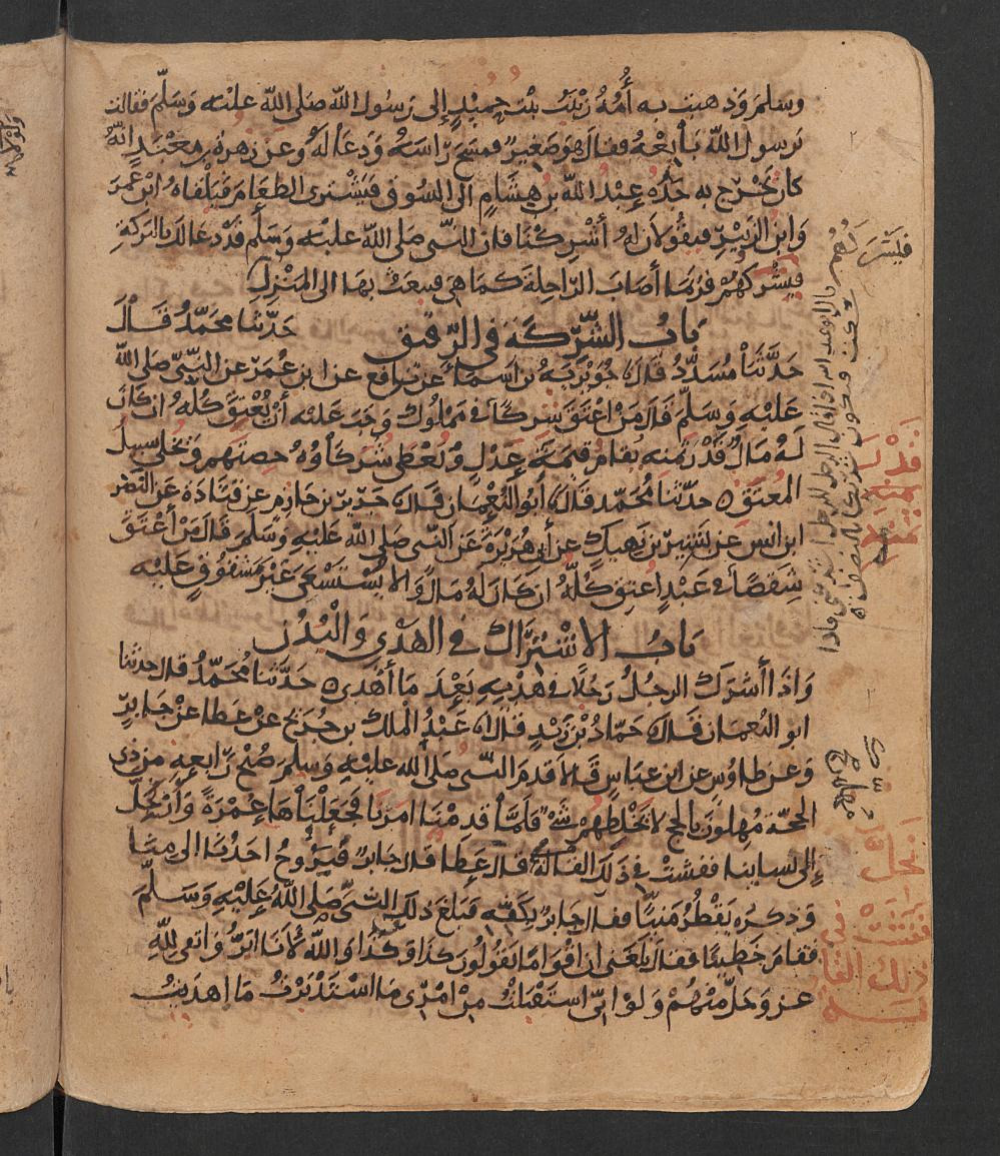 وسلم وذهبت به أمه زينب بنت حميد إلى رسول الله صلى الله عليه وسلم فقالت
يرسول الله بايعه فقال هو صغير فمسح راسه ودعا له وعن زهرة بن معبد انه
كان يخرج به جده عبد الله بن هشام الى السوق فيشترى الطعام فيلقاه ابن عمر
وابن الزبير فيقولان له أشركنا فان النبي صلى الله عليه وسلم قد دعا لك بالبركة
فيشركهم فربما أصاب الراحلة كما هي فيبعث بها الى المنزل
باب الشركة في الرقيق حدثنا محمد قال
حدثنا مسدد قال جويرية بن اسماء عن نافع عن ابن عمر عن النبي صلى الله
عليه وسلم قال من اعتق شركا في مملوك وجب عليه أن يعتق كله ان كان
له مال قدر ثمنه يقام قيمة عدل ويعطى شركاؤه حصتهم ويخلى سبيل
المعتق ه حدثنا محمد قال أبو النعمان قال جرير بن حازم عن قتادة عن النضر
ابن انس عن بشير بن نهيك عن أبي هريرة عن النبي صلى الله عليه وسلم قال من أعتق
شقصا في عبد اعتق كله ان كان له مال والا يستسعى غير مشقوق عليه
باب الاشتراك في الهدي والبدن
واذا أشرك الرجل رجلا في هديه بعد ما أهدى ه حدثنا محمد قال حدثنا
ابو النعمان قال حماد بن زيد قال عبد الملك بن جريج عن عطا عن جابر
وعن طاوس عن ابن عباس قالا قدم النبي صلى الله عليه وسلم صبح رابعه من ذي
الحجة مهلون بالحج لا يخلطهم شي فلما قدمنا امرنا فجعلناها عمرة وأن نحل
إلى نساينا ففشت في ذلك القالة قال عطا قال جابر فيروح احدنا الى منى
وذكره يقطر منيا فقال جابر بكفه فبلغ ذلك النبي صلى الله عليه وسلم
فقام خطيبا فقال بلغني ان اقواما يقولون كذا وكذا والله لأنا ابر واتقى لله
عز وجل منهم ولو اني استقبلت من امري ما استدبرت ما اهديت
فيشركهم
نحل
ففشت في
ذلك القا